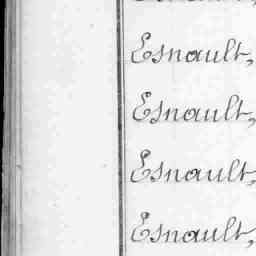 Esnault,
Esnault,
Esnault,
Esnault,